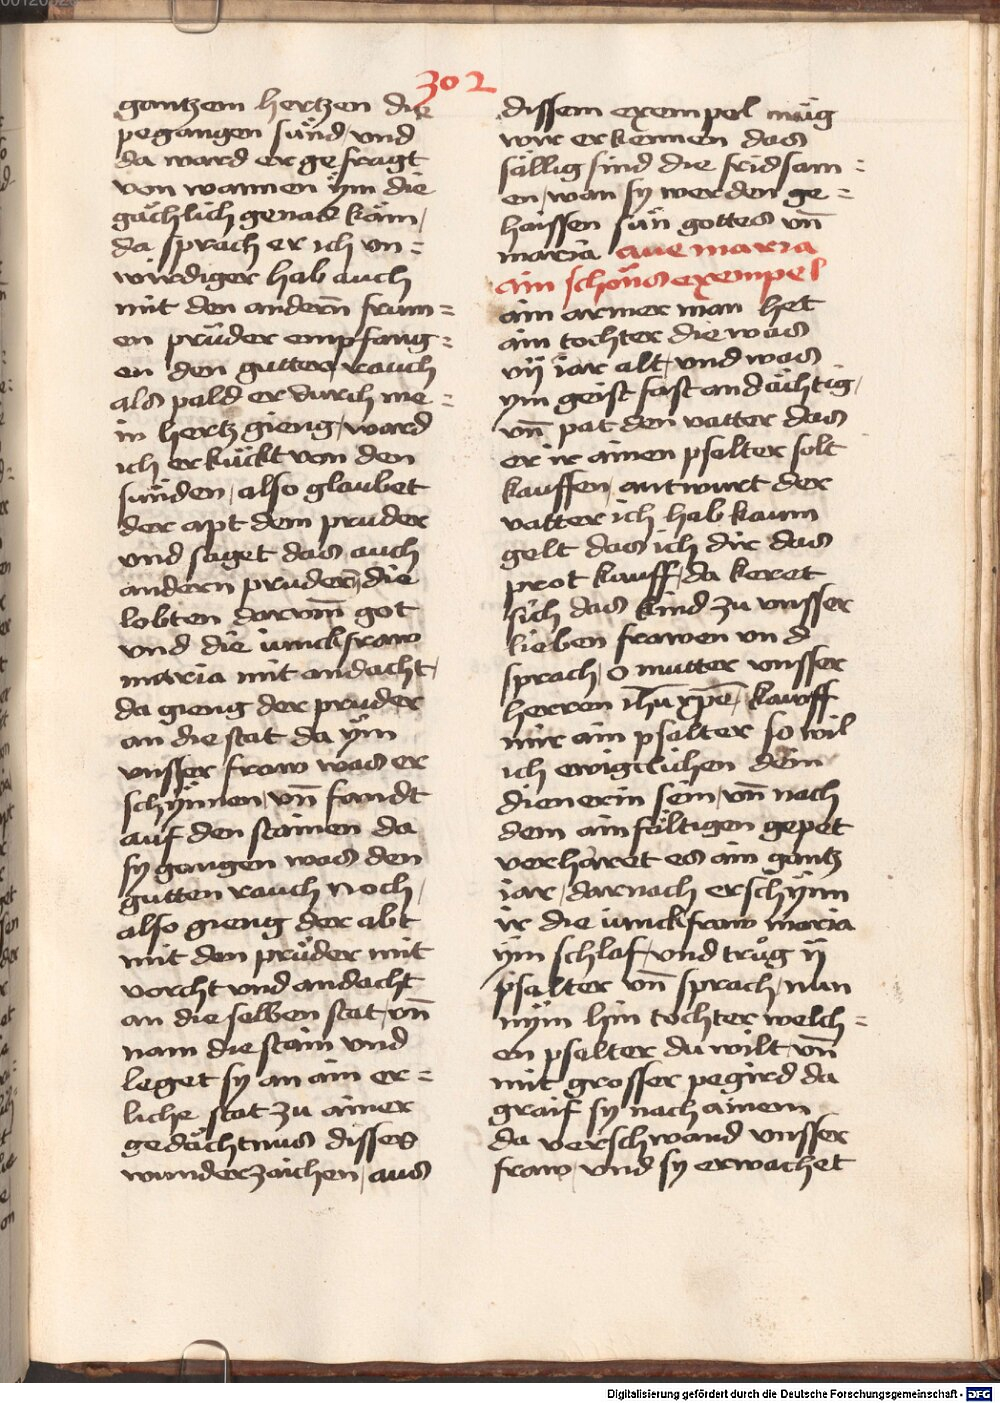 302
gantzem hertzen die
pegangen sünd, vnd
da ward er gefragt
von wannen ÿm die
gächlich genad käm,
da sprach er ich vn =
wirdiger hab auch
mit den andern̄ frum =
en prüder empfang =
en den gutten, rauch
als pald er durch me =
in hertz gieng, ward
ich erkückt von den
sünden, also glaubet
der apt dem pruder
vnd saget das auch
andern prudern̄, die
lobten darvm̄ got
vnd die iunckfraw
maria mit andacht,
da gieng der pruder
an die stat da ÿm
vnsser fraw was er
schÿnnen, vn̄ fandt
auf den stainen da
sy gangen was den
gutten rauch noch,
also gieng der abt
mit den prüder mit
vorcht vnd andacht
an die selben stat, vn̄
nam die stain vnd
leget sy an ain er =
liche stat zu ainer
gedächtnus disses
wunderzaichen, aus
dissem exempel müg
wir erkennen das
sällig sind die fridsam =
en, wan sy werden ge =
haissen sün gottes vn̄
maria aue maria
ain schöns exempel
ain armer man het
ain tochter die was
vij iar alt, vnd was
ym geist fast andächtig,
vn̄ pat den vatter das
er ir ainen psalter solt
kauffen, antwurt der
vatter ich hab kaum
gelt das ich dir das
prot kauff, da keret
sich das kind zu vnsser
lieben frawen vnd
sprach, o mutter vnsser
herren ih̄u xp̄e, kauff
mir ain psalter so wil
ich ewigclichen dein
dienerin sein, vn̄ nach
dem ainfältigen gepet
verharet es ain gantz
iar, darnach erschÿnn
ir die iunckfraw maria
ÿm schlaf, vnd trůg ij
psalter vn̄ sprach, nun
nÿm hin tochter welch =
en psalter du wilt, vn̄
mit grosser pegird da
graif sy nach ainem
da verschwand vnsser
fraw, vnd sy erwachet
Digitalisierung gefördert durch die Deutsche Forschungsgemeinschaft - DFG